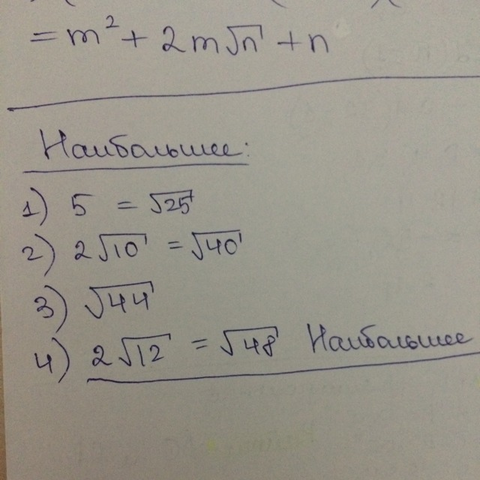 = m² + 2m√n + n
Наибольшее:
1) 5 = √25
2) 2√10 = √40
3) √44
4) 2√12 = √48 Наибольшее